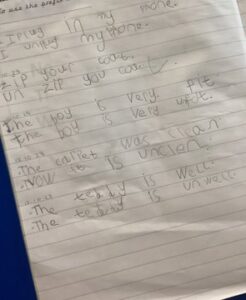 was the prefix
I plug in my phone.
I unplug my phone.
Zip your coat.
un zip you coat.
The boy is very. fit
The boy is very unfit.
The carpet was clean
.Now it is unclean.
.The teddy is well.
.The teddy is unwell.